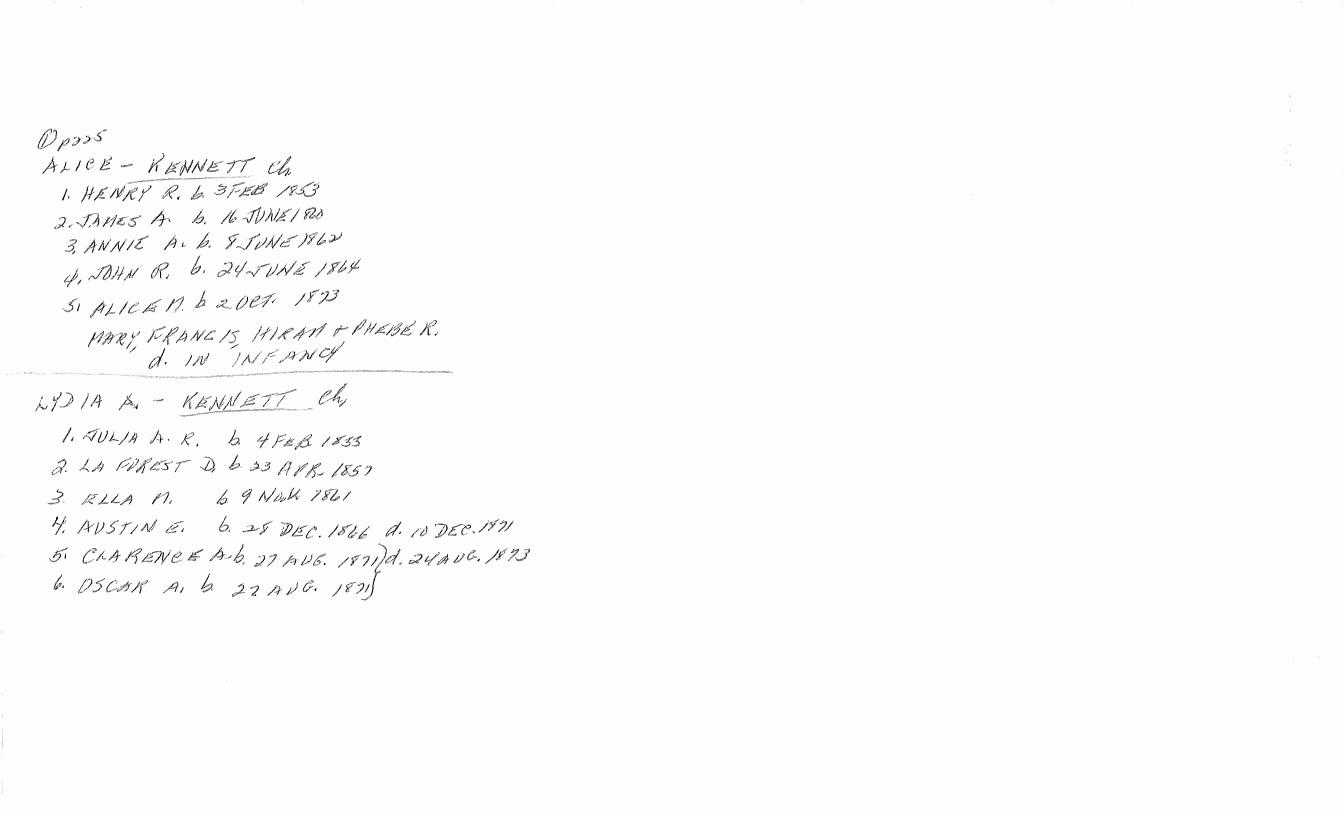 ① p225
ALICE - KENNETT Ch
1. HENRY R. b. 3 FEB 1853
2. JAMES A. b. 16 JUNE
3. ANNIE A. b. 8 JUNE 1862
4. JOHN R. b. 24 JUNE 1864
5. ALICE M. b 2 OCT. 1873
MARY, FRANCIS, HIRAM + PHEBE R.
d. IN INFANCY
LYDIA A. - KENNETT Ch,
1. JULIA A. R. b. 4 FEB. 1855
2. LA FOREST D. b 23 APR. 1857
3. ELLA M. b 9 NOV. 1861
4. AUSTIN E. b. 28 DEC. 1866 d. 10 DEC. 1871
5. CLARENCE A. b. 27 AUG. 1871) d. 24 AUG. 1873
6. OSCAR A. b 27 AUG. 1871)